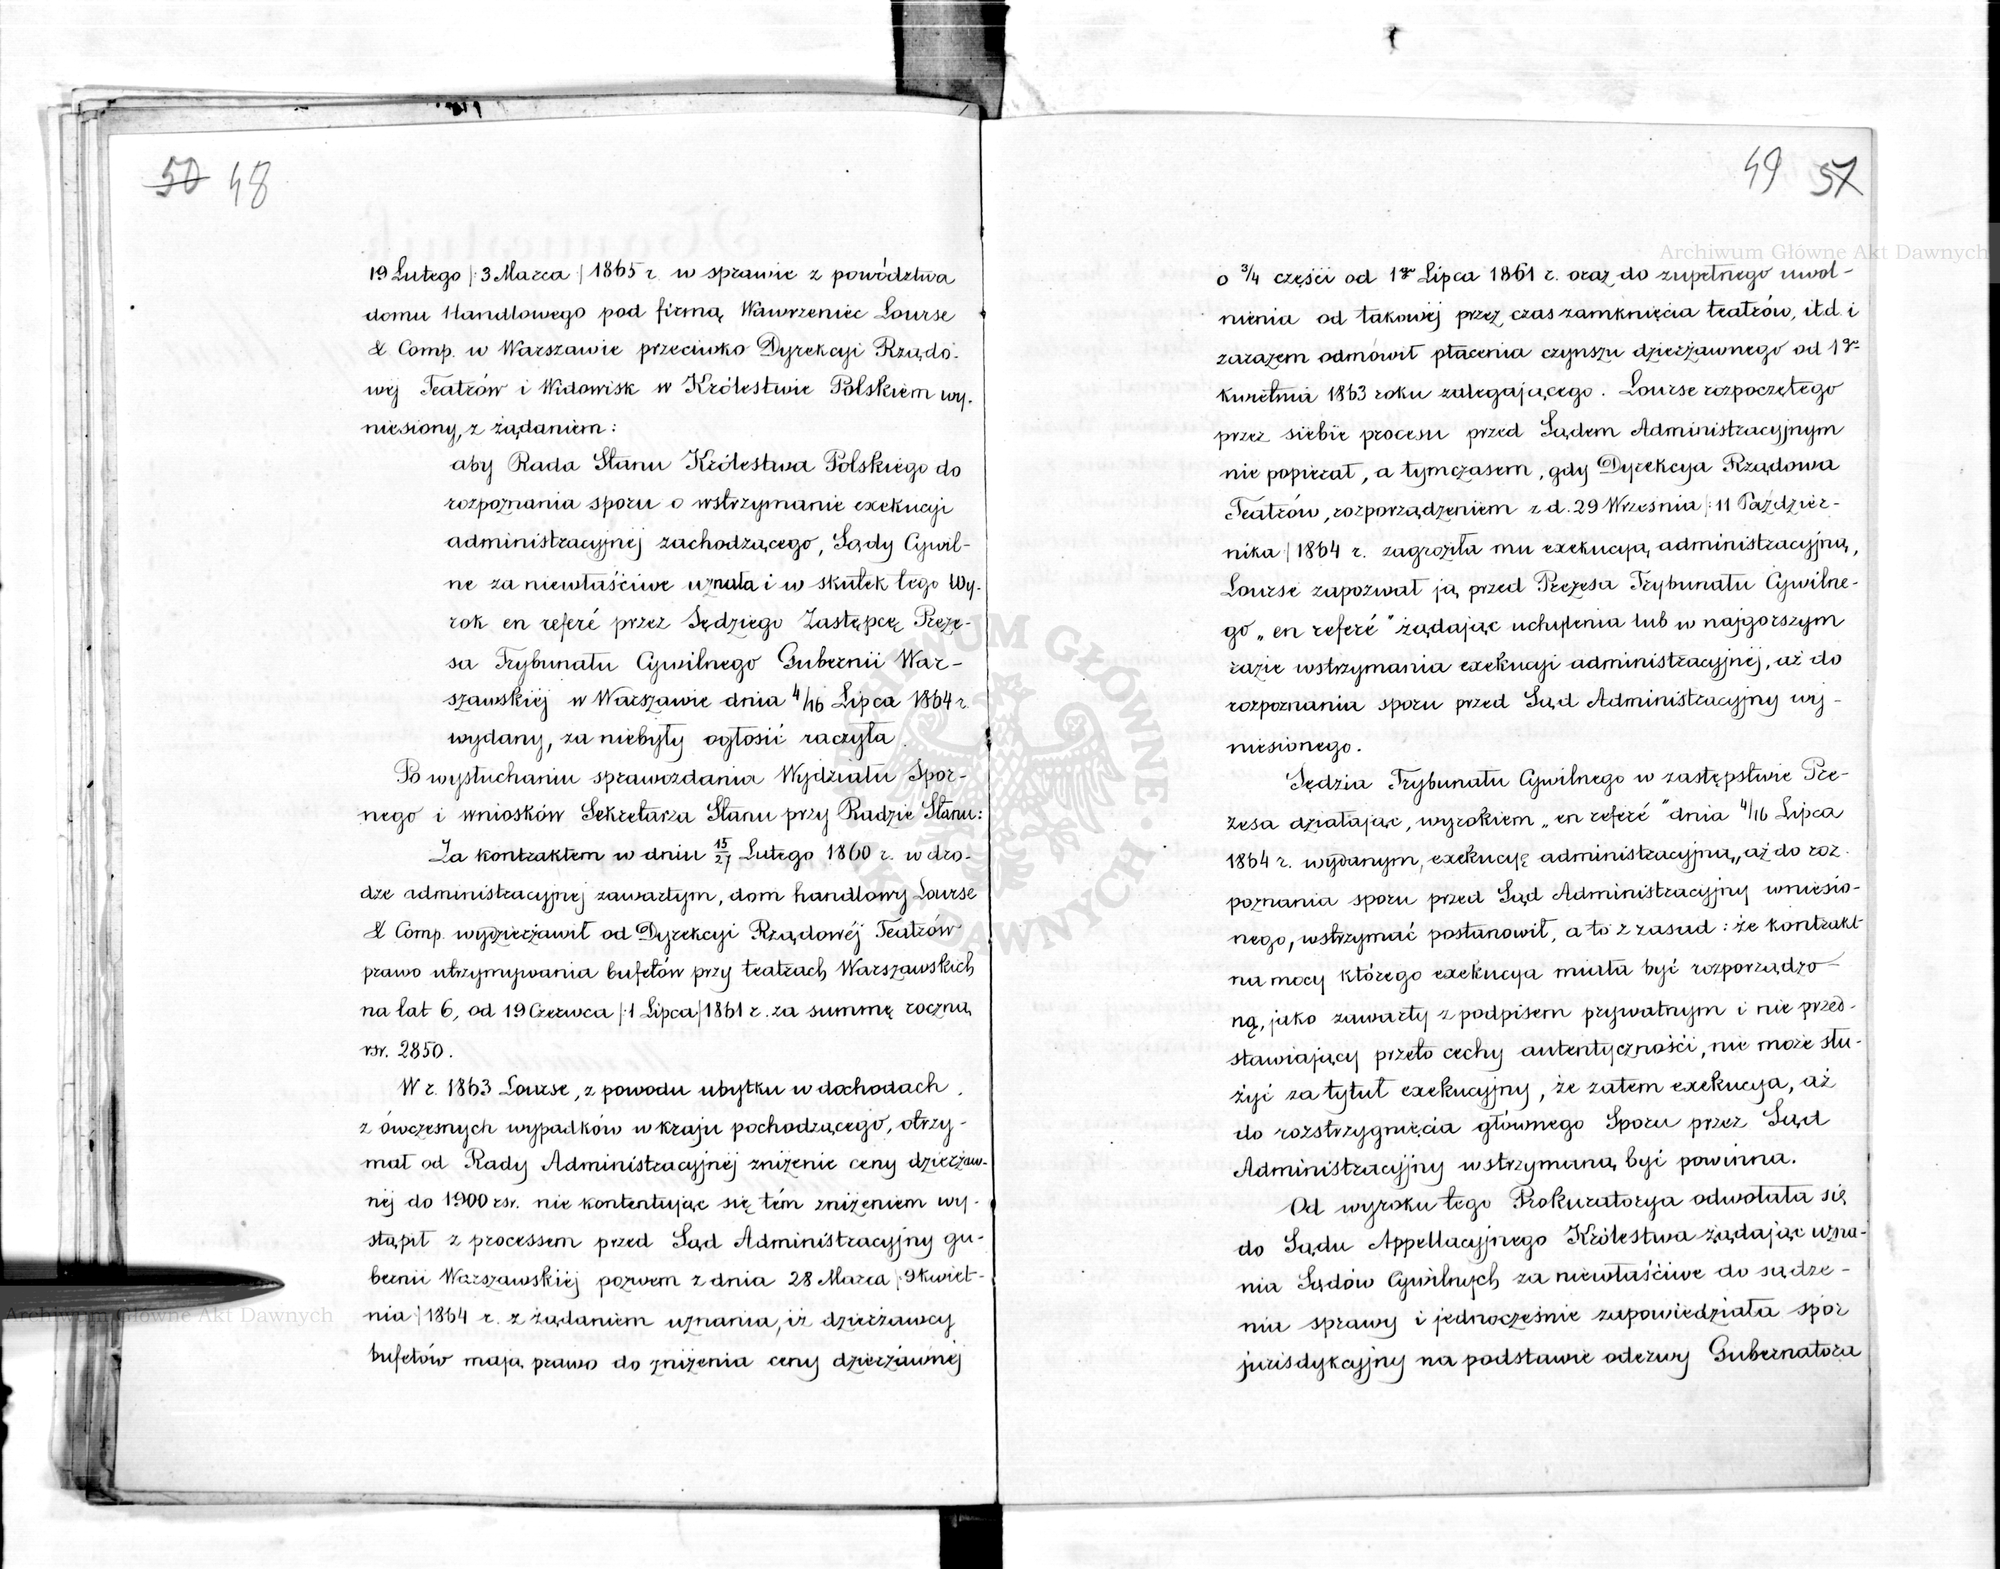 50 48
19 Lutego /: 3 Marca :/ 1865 r. w sprawie z powództwa
domu Handlowego pod firmą Wawrzeniec Lourse
& Comp. w Warszawie przeciwko Dyrekcyi Rządo-
wéj Teatrów i Widowisk w Królestwie Polskiem wy-
niesiony, z żądaniem:
aby Rada Stanu Królestwa Polskiego do
rozpoznania sporu o wstrzymanie exekucyi
administracyjnéj zachodzącego, Sądy Cywil-
ne za niewłaściwe uznała i w skutek tego Wy-
rok en referé przez Sędziego Zastępcę Preze-
sa Trybunału Cywilnego Gubernii War-
szawskiéj w Warszawie dnia 4/16 Lipca 1864 r.
wydany, za niebyły ogłosić raczyła.
Po wysłuchaniu sprawozdania Wydziału Spor-
nego i wniosków Sekretarza Stanu przy Radzie Stanu:
Za kontraktem w dniu 15/27 Lutego 1860 r. w dro-
dze administracyjnéj zawartym, dom handlowy Lourse
& Comp. wydzierżawił od Dyrekcyi Rządowéj Teatrów
prawo utrzymywania bufetów przy teatrach Warszawskich
na lat 6, od 19 Czerwca /: 1 Lipca :/ 1861 r. za summę roczną
rsr. 2850.
W r. 1863 Lourse, z powodu ubytku w dochodach
z ówczesnych wypadków w kraju pochodzącego, otrzy-
mał od Rady Administracyjnéj zniżenie ceny dzierżaw-
néj do 1900 rsr. nie kontentując się tém zniżeniem wy-
stąpił z processem przed Sąd Administracyjny gu-
bernii Warszawskiéj pozwem z dnia 28 Marca /: 9 kwiet-
nia :/ 1864 r. z żądaniem uznania, iż dzierżawcy
bufetów mają prawo do zniżenia ceny dzierżawnéj
49 51
o 3/4 części od 1go Lipca 1861 r. oraz do zupełnego uwol-
nienia od takowéj przez czas zamknięcia teatrów, it.d. i
zarazem odmówił płacenia czynszu dzierżawnego od 1go
kwietnia 1863 roku zalegającego. Lourse rozpoczętego
przez siebie procesu przed Sądem Administracyjnym
nie popierał, a tymczasem, gdy Dyrekcya Rządowa
Teatrów, rozporządzeniem z d. 29 Września /: 11 Paździer-
nika :/ 1864 r. zagroziła mu exekucyą administracyjną,
Lourse zapozwał ją przed Prezesa Trybunału Cywilne-
go „en referé" żądając uchylenia lub w najgorszym
razie wstrzymania exekucyi administracyjnéj, aż do
rozpoznania sporu przed Sąd Administracyjny wy-
niesionego.
Sędzia Trybunału Cywilnego w zastępstwie Pre-
zesa działając, wyrokiem „en referé" dnia 4/16 Lipca
1864 r. wydanym, exekucyę administracyjną, aż do roz-
poznania sporu przed Sąd Administracyjny wniesio-
nego, wstrzymać postanowił, a to z zasad: że kontrakt
na mocy którego exekucya miała być rozporządzo-
ną, jako zawarty z podpisem prywatnym i nie przed-
stawiający przeto cechy autentyczności, nie może słu-
żyć za tytuł exekucyjny, że zatem exekucya, aż
do rozstrzygnięcia głównego Sporu przez Sąd
Administracyjny wstrzymaną być powinna.
Od wyroku tego Prokuratorya odwołała się
do Sądu Appellacyjnego Królestwa żądając uzna-
nia Sądów Cywilnych za niewłaściwe do sądze-
nia sprawy i jednocześnie zapowiedziała spór
jurisdykcyjny na podstawie odezwy Gubernatora
Archiwum Główne Akt Dawnych
Archiwum Główne Akt Dawnych
ARCHIWUM GŁÓWNE AKT DAWNYCH